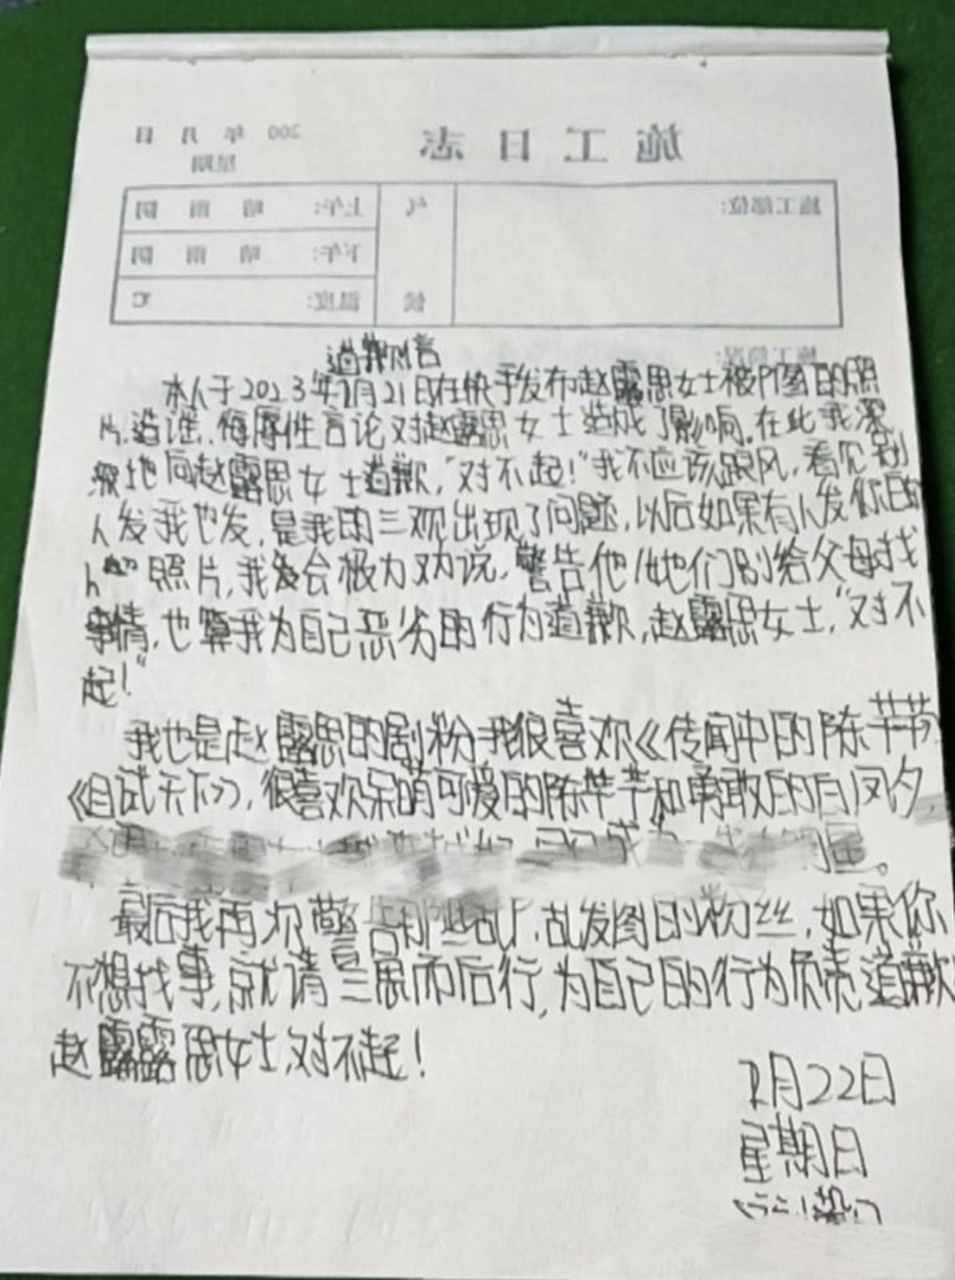 施工日志
200 年 月 日
星期
施工部位:
气候
上午: 晴 雨 阴
下午: 晴 雨 阴
温度: ℃
施工情况:
道歉信
本人于2023年1月21日在快手发布赵露思女士被P图的照
片.造谣、侮辱性言论对赵露思女士造成了影响.在此我深
深地向赵露思女士道歉,“对不起!”我不应该跟风,看见别
人发我也发,是我的三观出现了问题,以后如果有人发你的
照片,我会极力劝说,警告他/她们别给父母找
事情,也算我为自己恶劣的行为道歉,赵露思女士,“对不
起!”
我也是赵露思的剧粉我很喜欢《传闻中的陈芊芊
《且试天下》,很喜欢呆萌可爱的陈芊芊和勇敢的白凤夕,
最后我再次警告那些乱P,乱发图的粉丝,如果你
不想找事,就请三思而后行,为自己的行为负责,道歉
赵露思女士,对不起!
1月22日
星期日